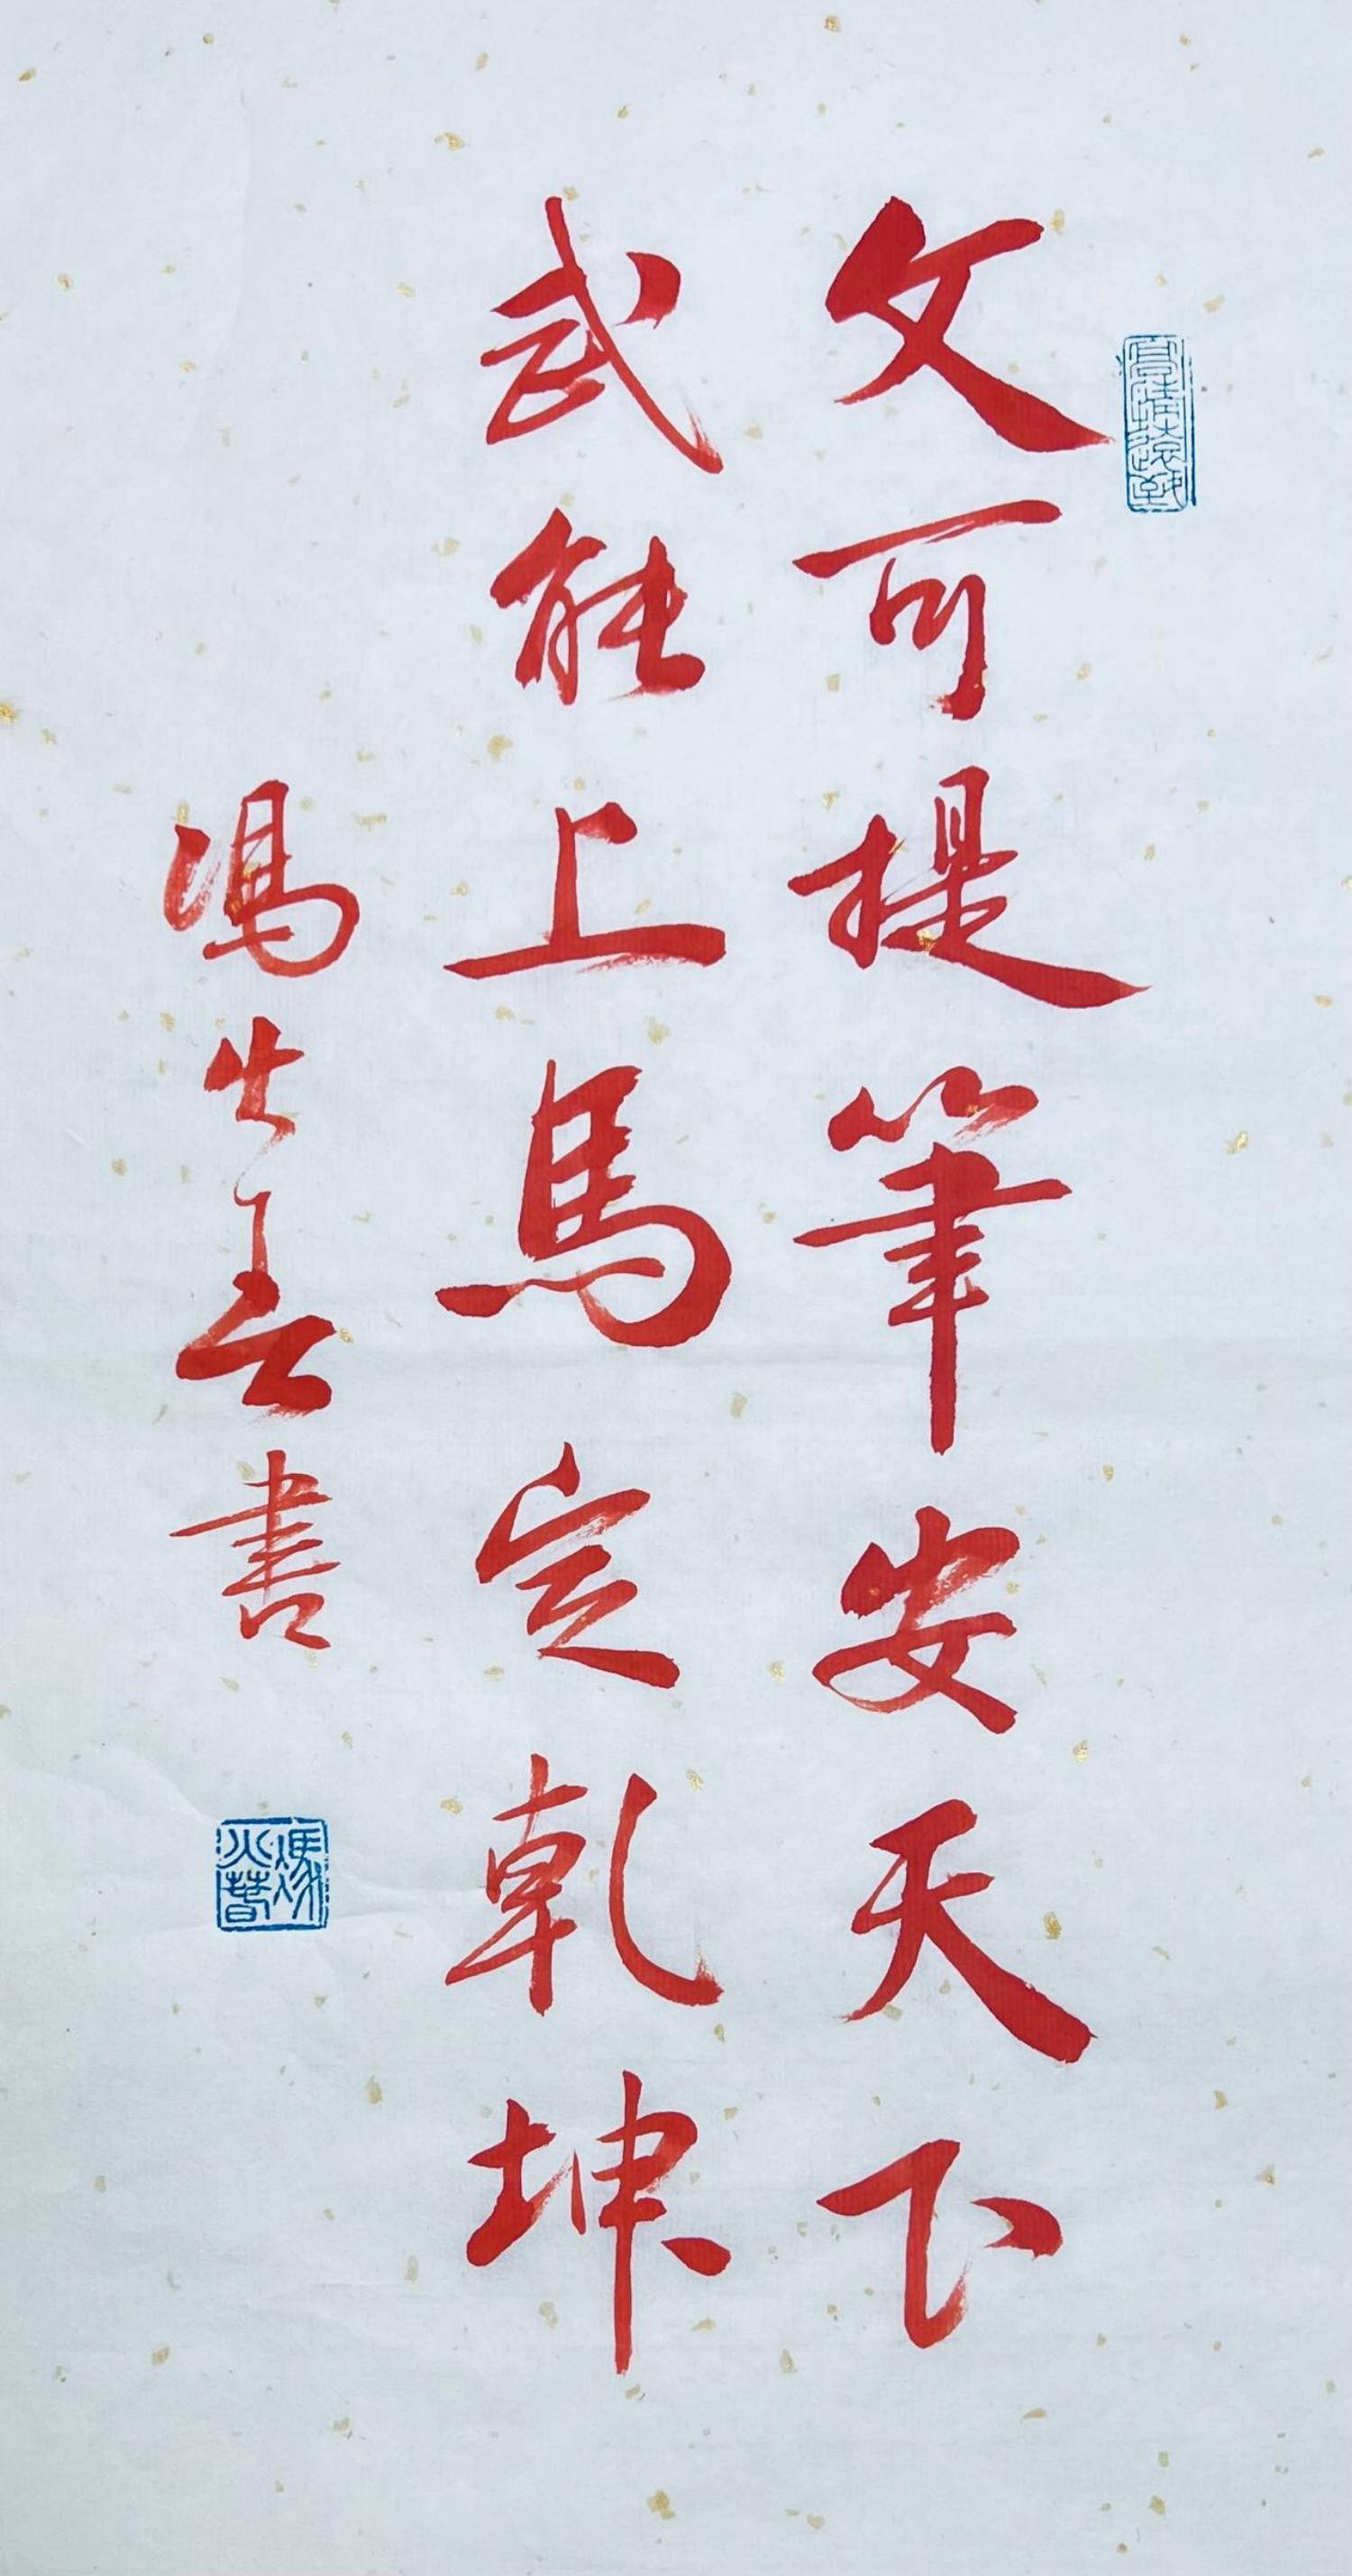 文可提筆安天下
武能上馬定乾坤
馮 書